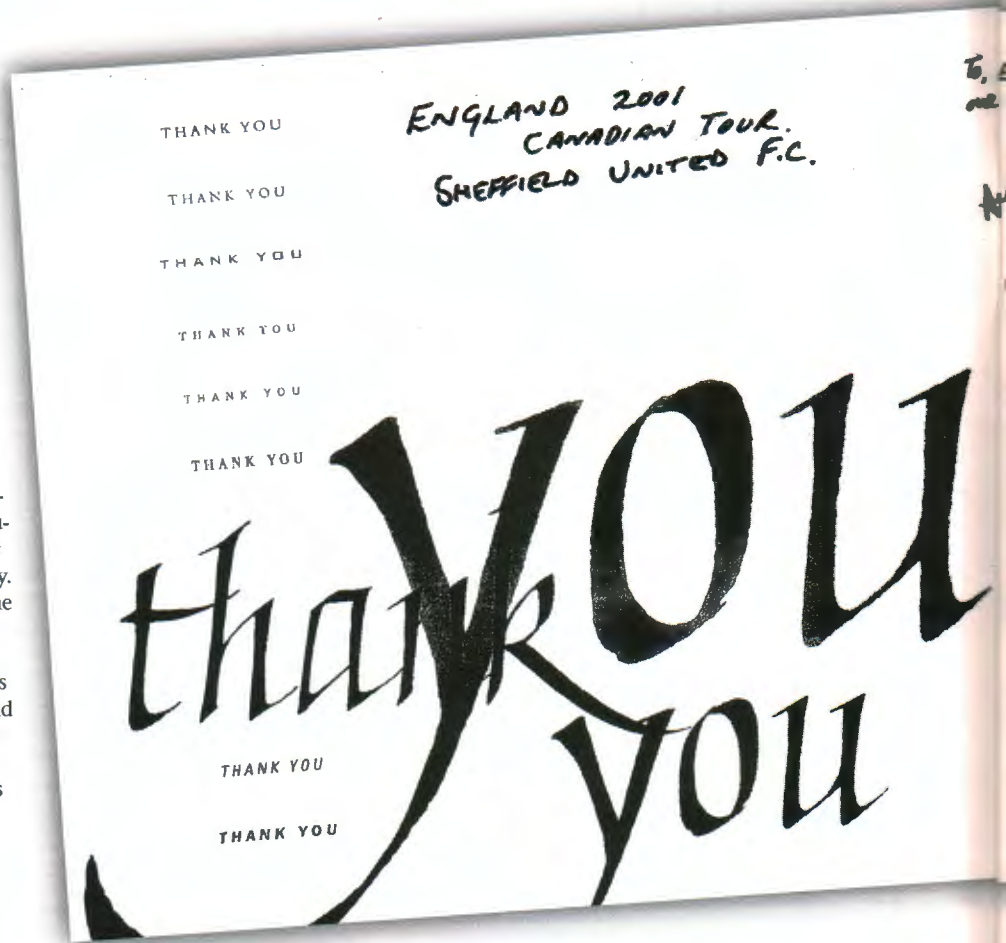 THANK YOU
THANK YOU
THANK YOU
THANK YOU
THANK YOU
THANK YOU
ENGLAND 2001
CANADIAN TOUR.
SHEFFIELD UNITED F.C.
To,
our
you
thank
you
THANK YOU
THANK YOU